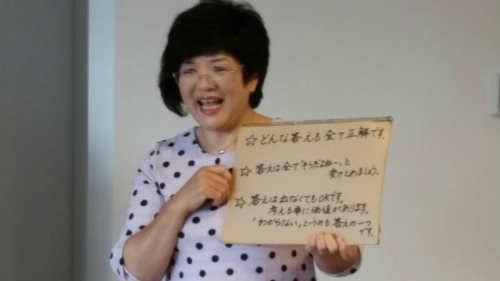 ☆どんな答えも全て正解です。
☆答えは全て「そうだよねー」と
受けとめましょう。
☆答えは出なくてもOKです。
考える事に価値があります。
「わからない」というのも答えの一つ
です。